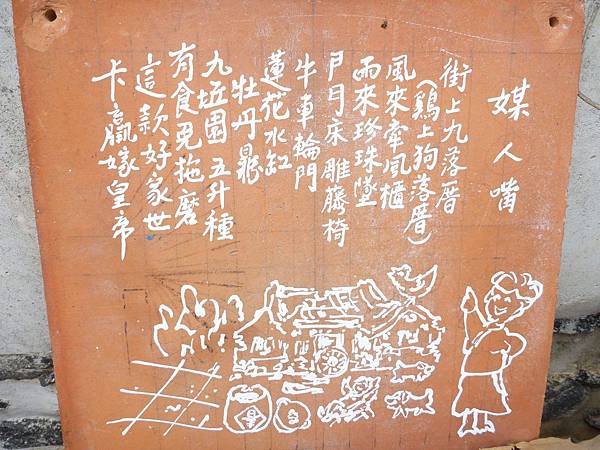 媒人嘴
街上九落厝
(鷄上狗落厝)
風來牽風櫃
雨來珍珠墜
尸月床 雕藤椅
牛車輪門
蓮花水缸
牡丹鼎
九坵園 五升種
有食免拖磨
這款好家世
卡贏嫁皇帝